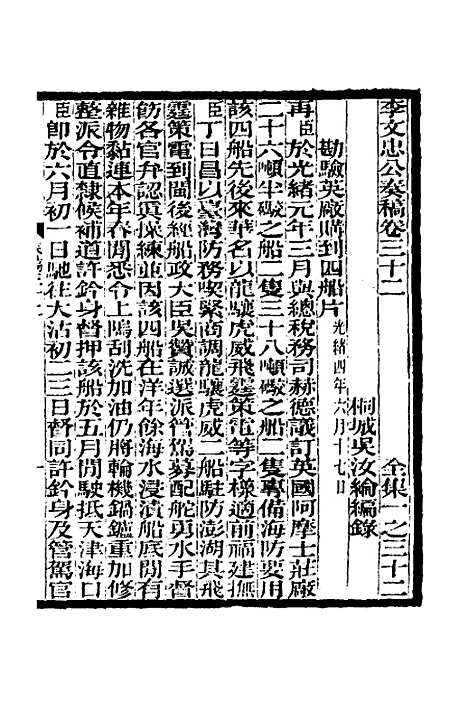 李文忠公奏稿卷三十二　全集一之三十二
桐城吳汝綸編錄
勘驗英廠購到四船片 光緒四年六月十七日
再臣於光緒元年三月與總稅務司赫德議訂英國阿摩士莊廠
二十六噸半礮之船二隻三十八噸礮之船二隻專備海防要用
該四船先後來華名以龍驤虎威飛霆策電等字樣適前福建撫
臣丁日昌以臺灣防務喫緊商調龍驤虎威二船駐防澎湖其飛
霆策電到閩後經船政大臣吳贊誠選派管駕募配舵勇水手督
飭各官弁認眞操練並因該四船在洋年餘海水浸漬船底間有
雜物黏連本年春閒悉令上隖刮洗加油仍將輪機鍋鑪重加修
整派令直隸候補道許鈐身督押該船於五月閒駛抵天津海口
臣卽於六月初一日馳往大沽初二三日督同許鈐身及管駕官